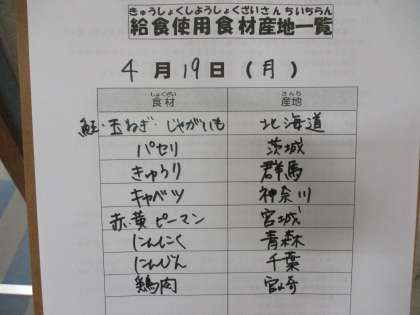 きゅうしょくしようしょくざいさんちいちらん
給食使用食材産地一覧
4月19日(月)
しょくざい さんち
食材 産地
鮭・玉ねぎ・じゃがいも 北海道
パセリ 茨城
きゅうり 群馬
キャベツ 神奈川
赤・黄ピーマン 宮城
にんにく 青森
にんじん 千葉
鶏肉 宮崎